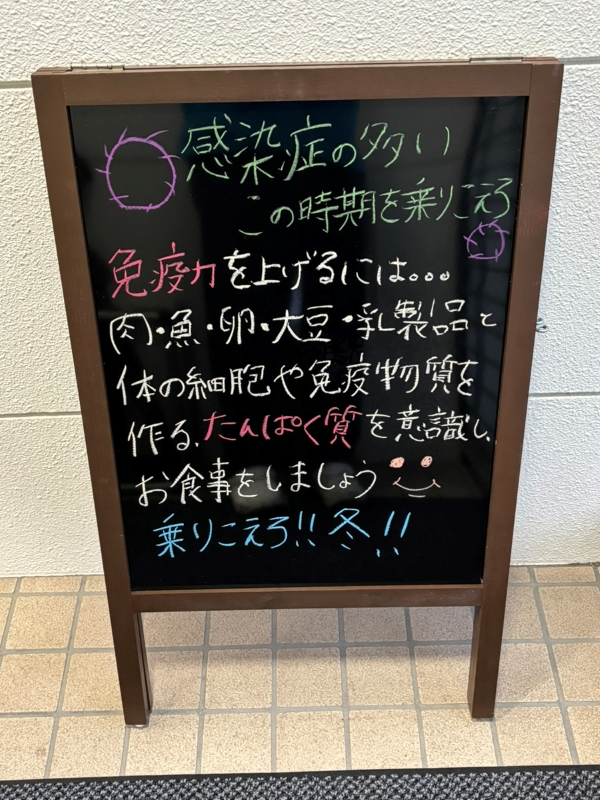 感染症の多い
この時期を乗りこえろ
免疫力を上げるには。。。
肉・魚・卵・大豆・乳製品と
体の細胞や免疫物質を
作る、たんぱく質を意識し、
お食事をしましょう
乗りこえろ!!冬!!